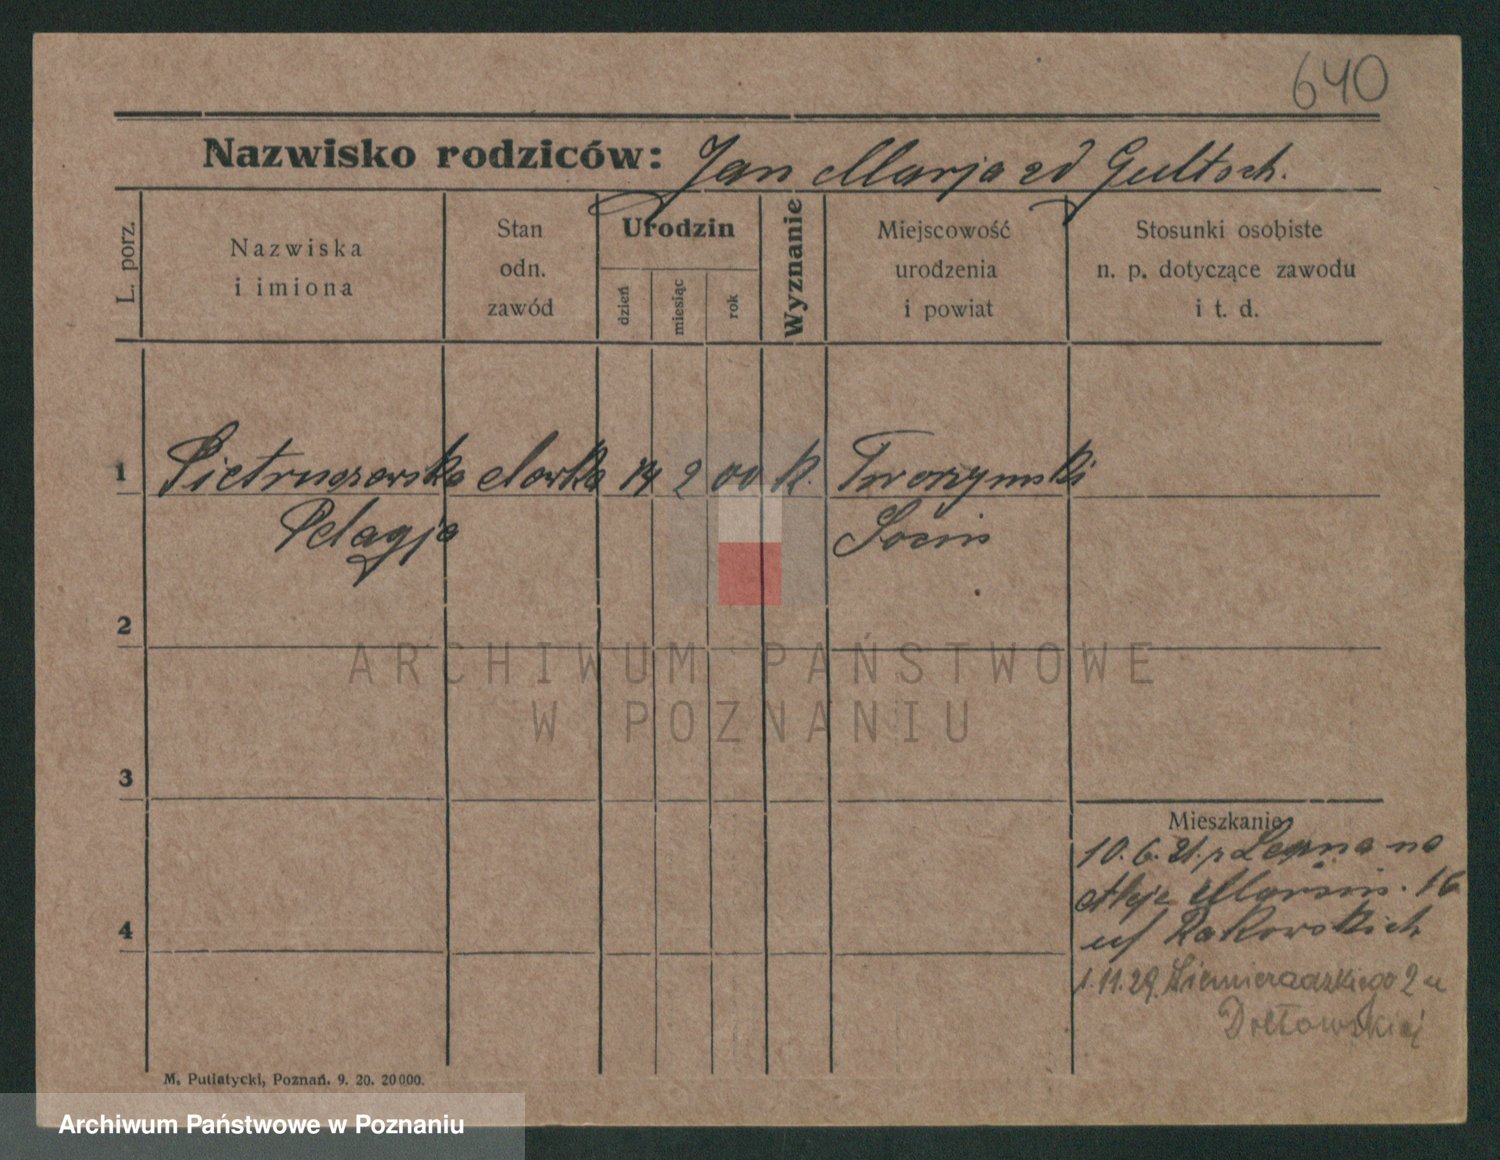 640
Nazwisko rodziców: Jan Marja zd Gultsch.
L. porz.
Nazwiska
i imiona
Stan
odn.
zawód
Urodzin
dzień
miesiąc
rok
Wyznanie
Miejscowość
urodzenia
i powiat
Stosunki osobiste
n. p. dotyczące zawodu
i t. d.
1 Pietruszewska 14 2 00 k.
Pelagja
2
3
4
Mieszkanie
10. 6. 21. na
Aleje Marcin. 16
u/ Rakowskich
1. 11. 29. 2 u
ARCHIWUM PAŃSTWOWE
W POZNANIU
M. Putiatycki, Poznań. 9. 20. 20000.
Archiwum Państwowe w Poznaniu